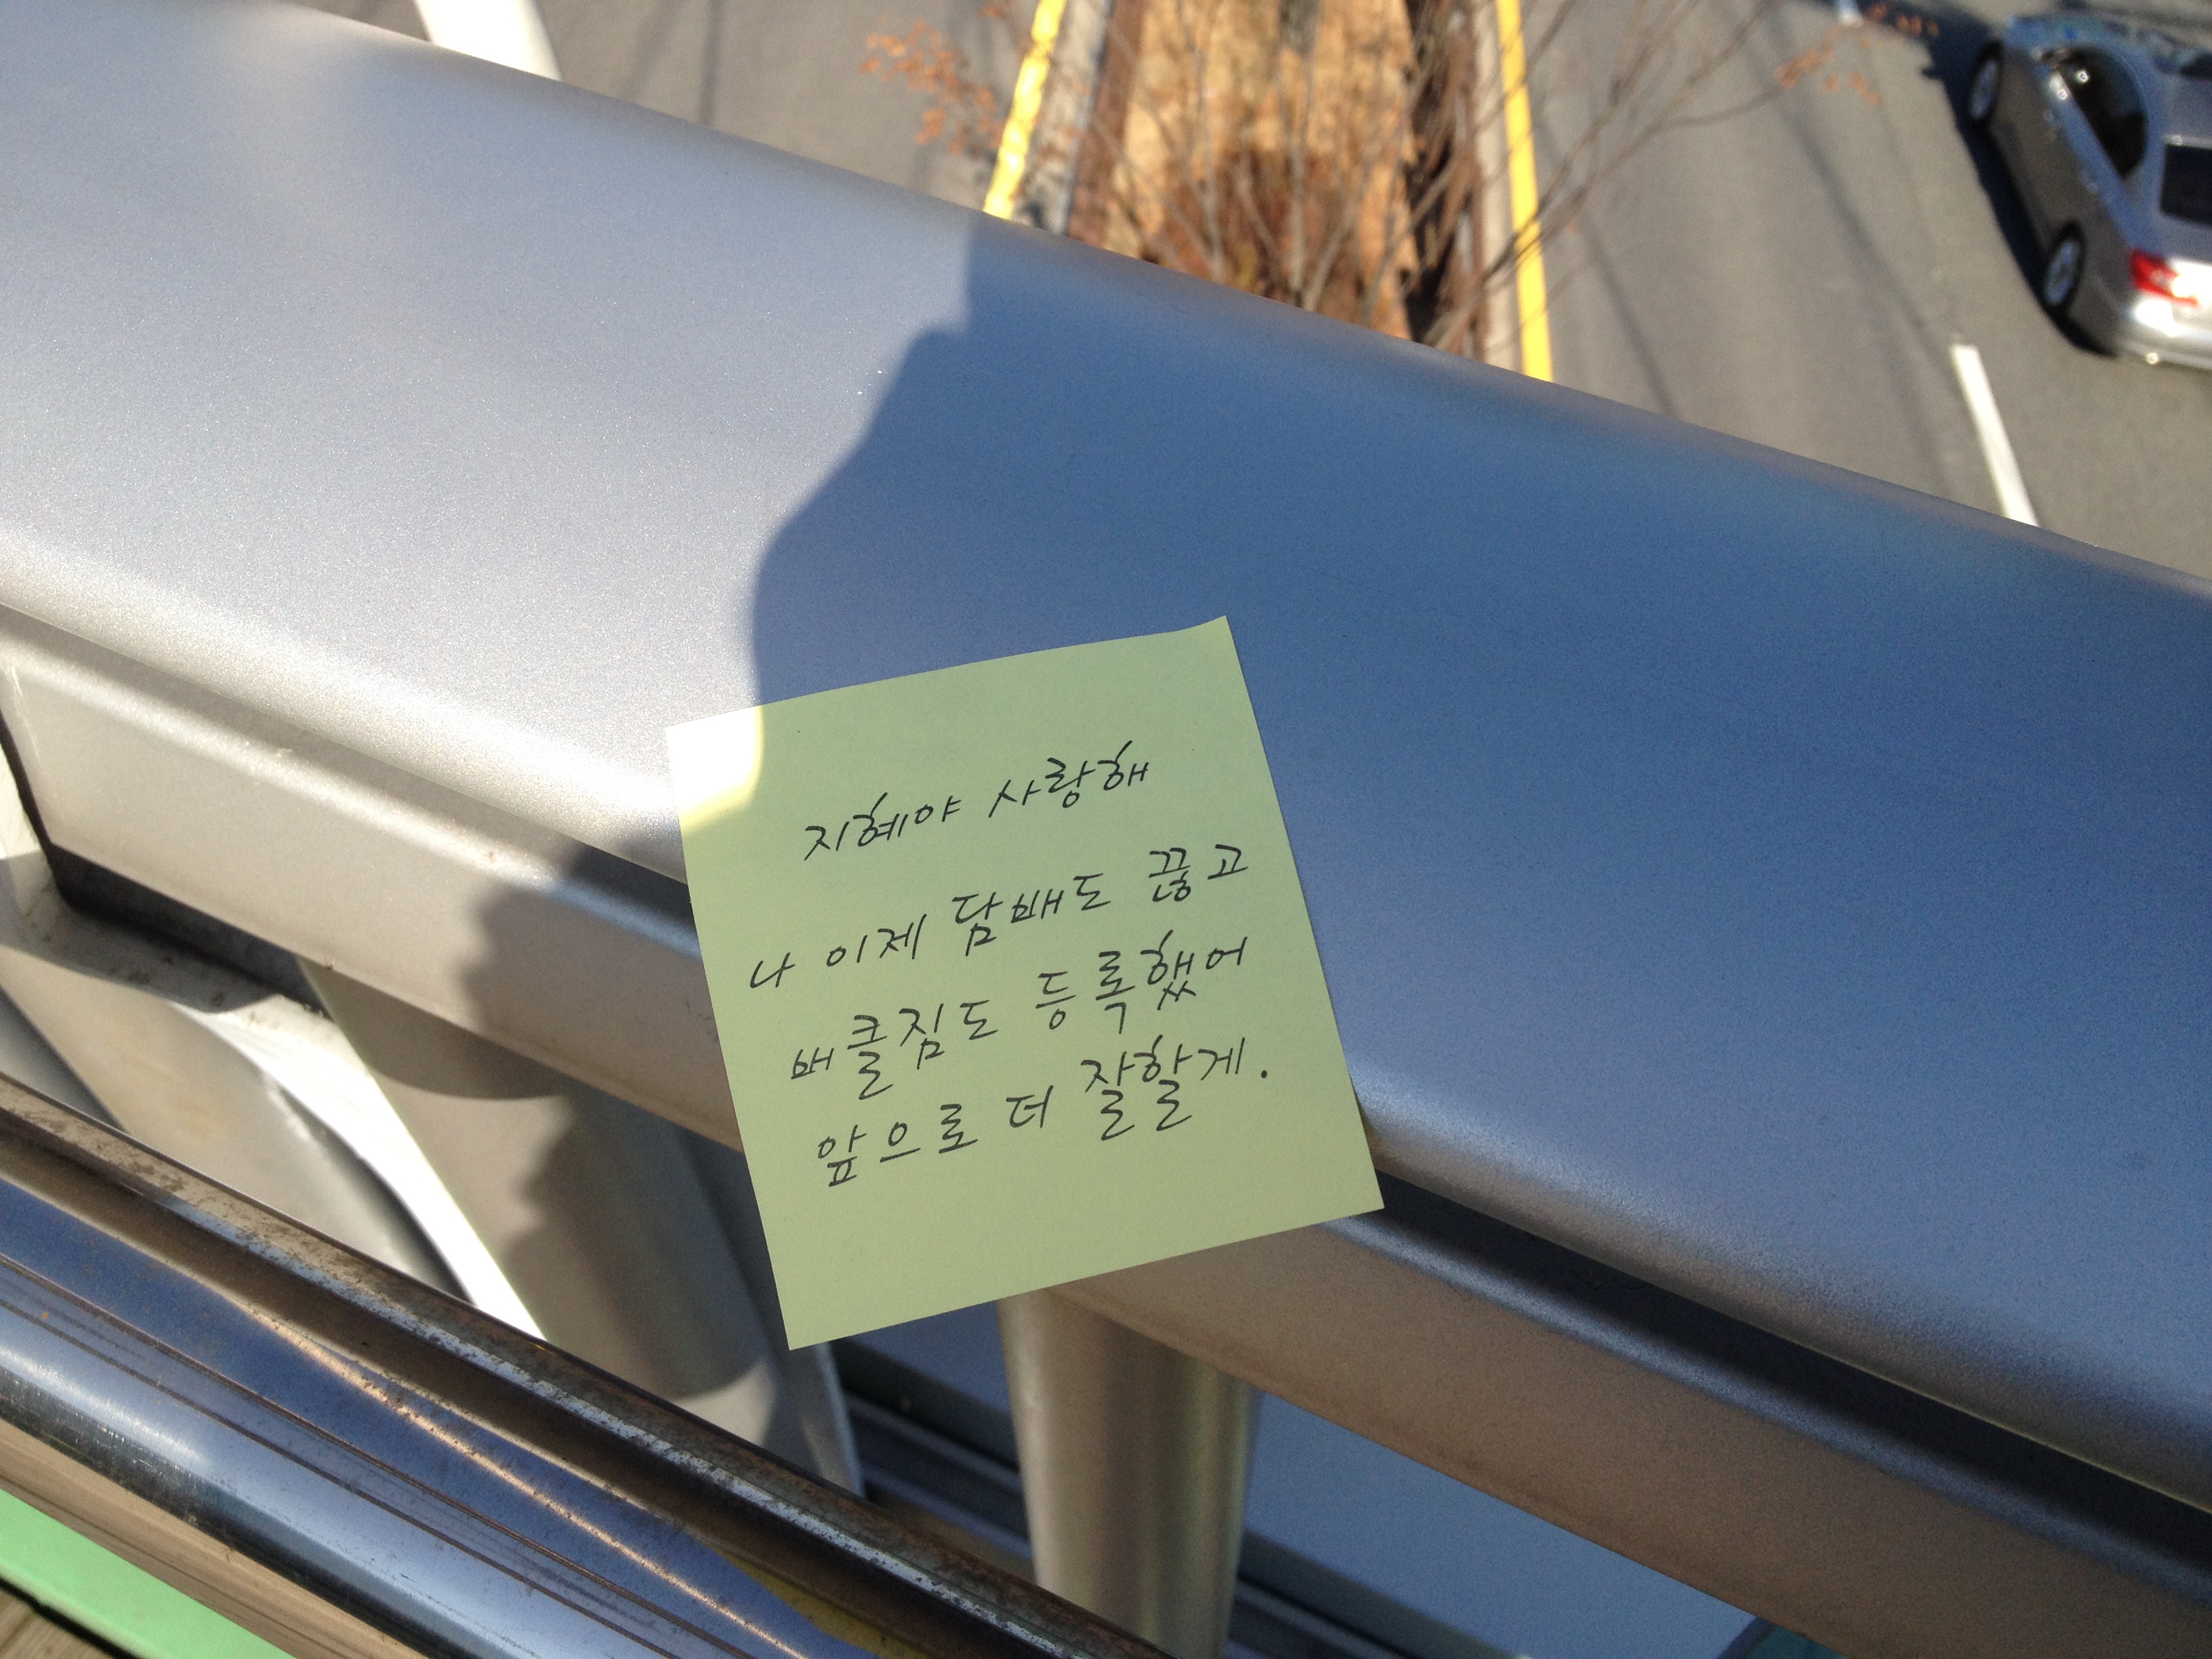 지혜야 사랑해
나 이제 담배도 끊고
배클짐도 등록했어
앞으로 더 잘할게.